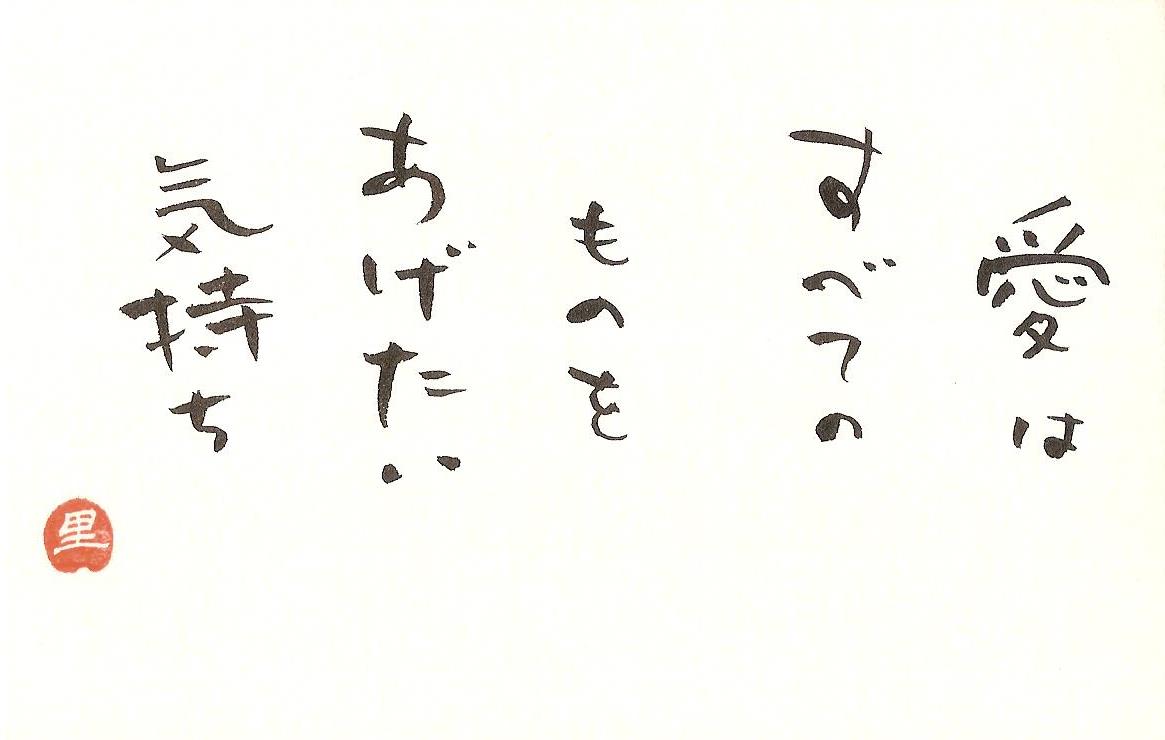 愛は
すべての
ものを
あげたい
気持ち
里